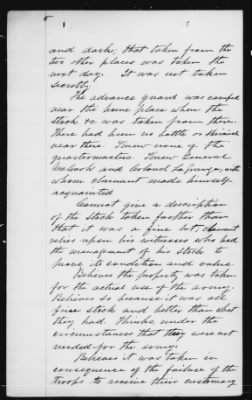 and dark; that taken from the
two other places was taken the
next day. It was not taken
secretly.
The advance guard was camped
near the home place when the
stock &c was taken from there.
There had been no battle or skirmish
near there. Knew none of the
quartermasters. Knew General
McCook and Colonel La Grange, with
whom claimant made himself
acquainted
Cannot give a description
of the stock taken further than
that it was a fine lot; claimant
relies upon his witnesses who had
the management of his stock to
prove its condition and value.
Believes the property was taken
for the actual use of the army.
Believes so because it was all
fine stock and better than what
they had. Thinks under the
circumstances that they were not
needed for the army.
Believes it was taken in
consequence of the failure of the
troops to receive their customary